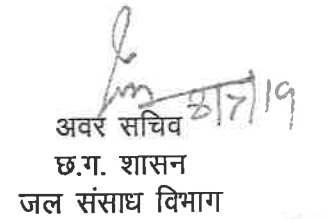 8/7/19
अवर सचिव
छ.ग. शासन
जल संसाध विभाग